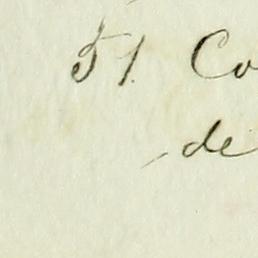 51. Co
de